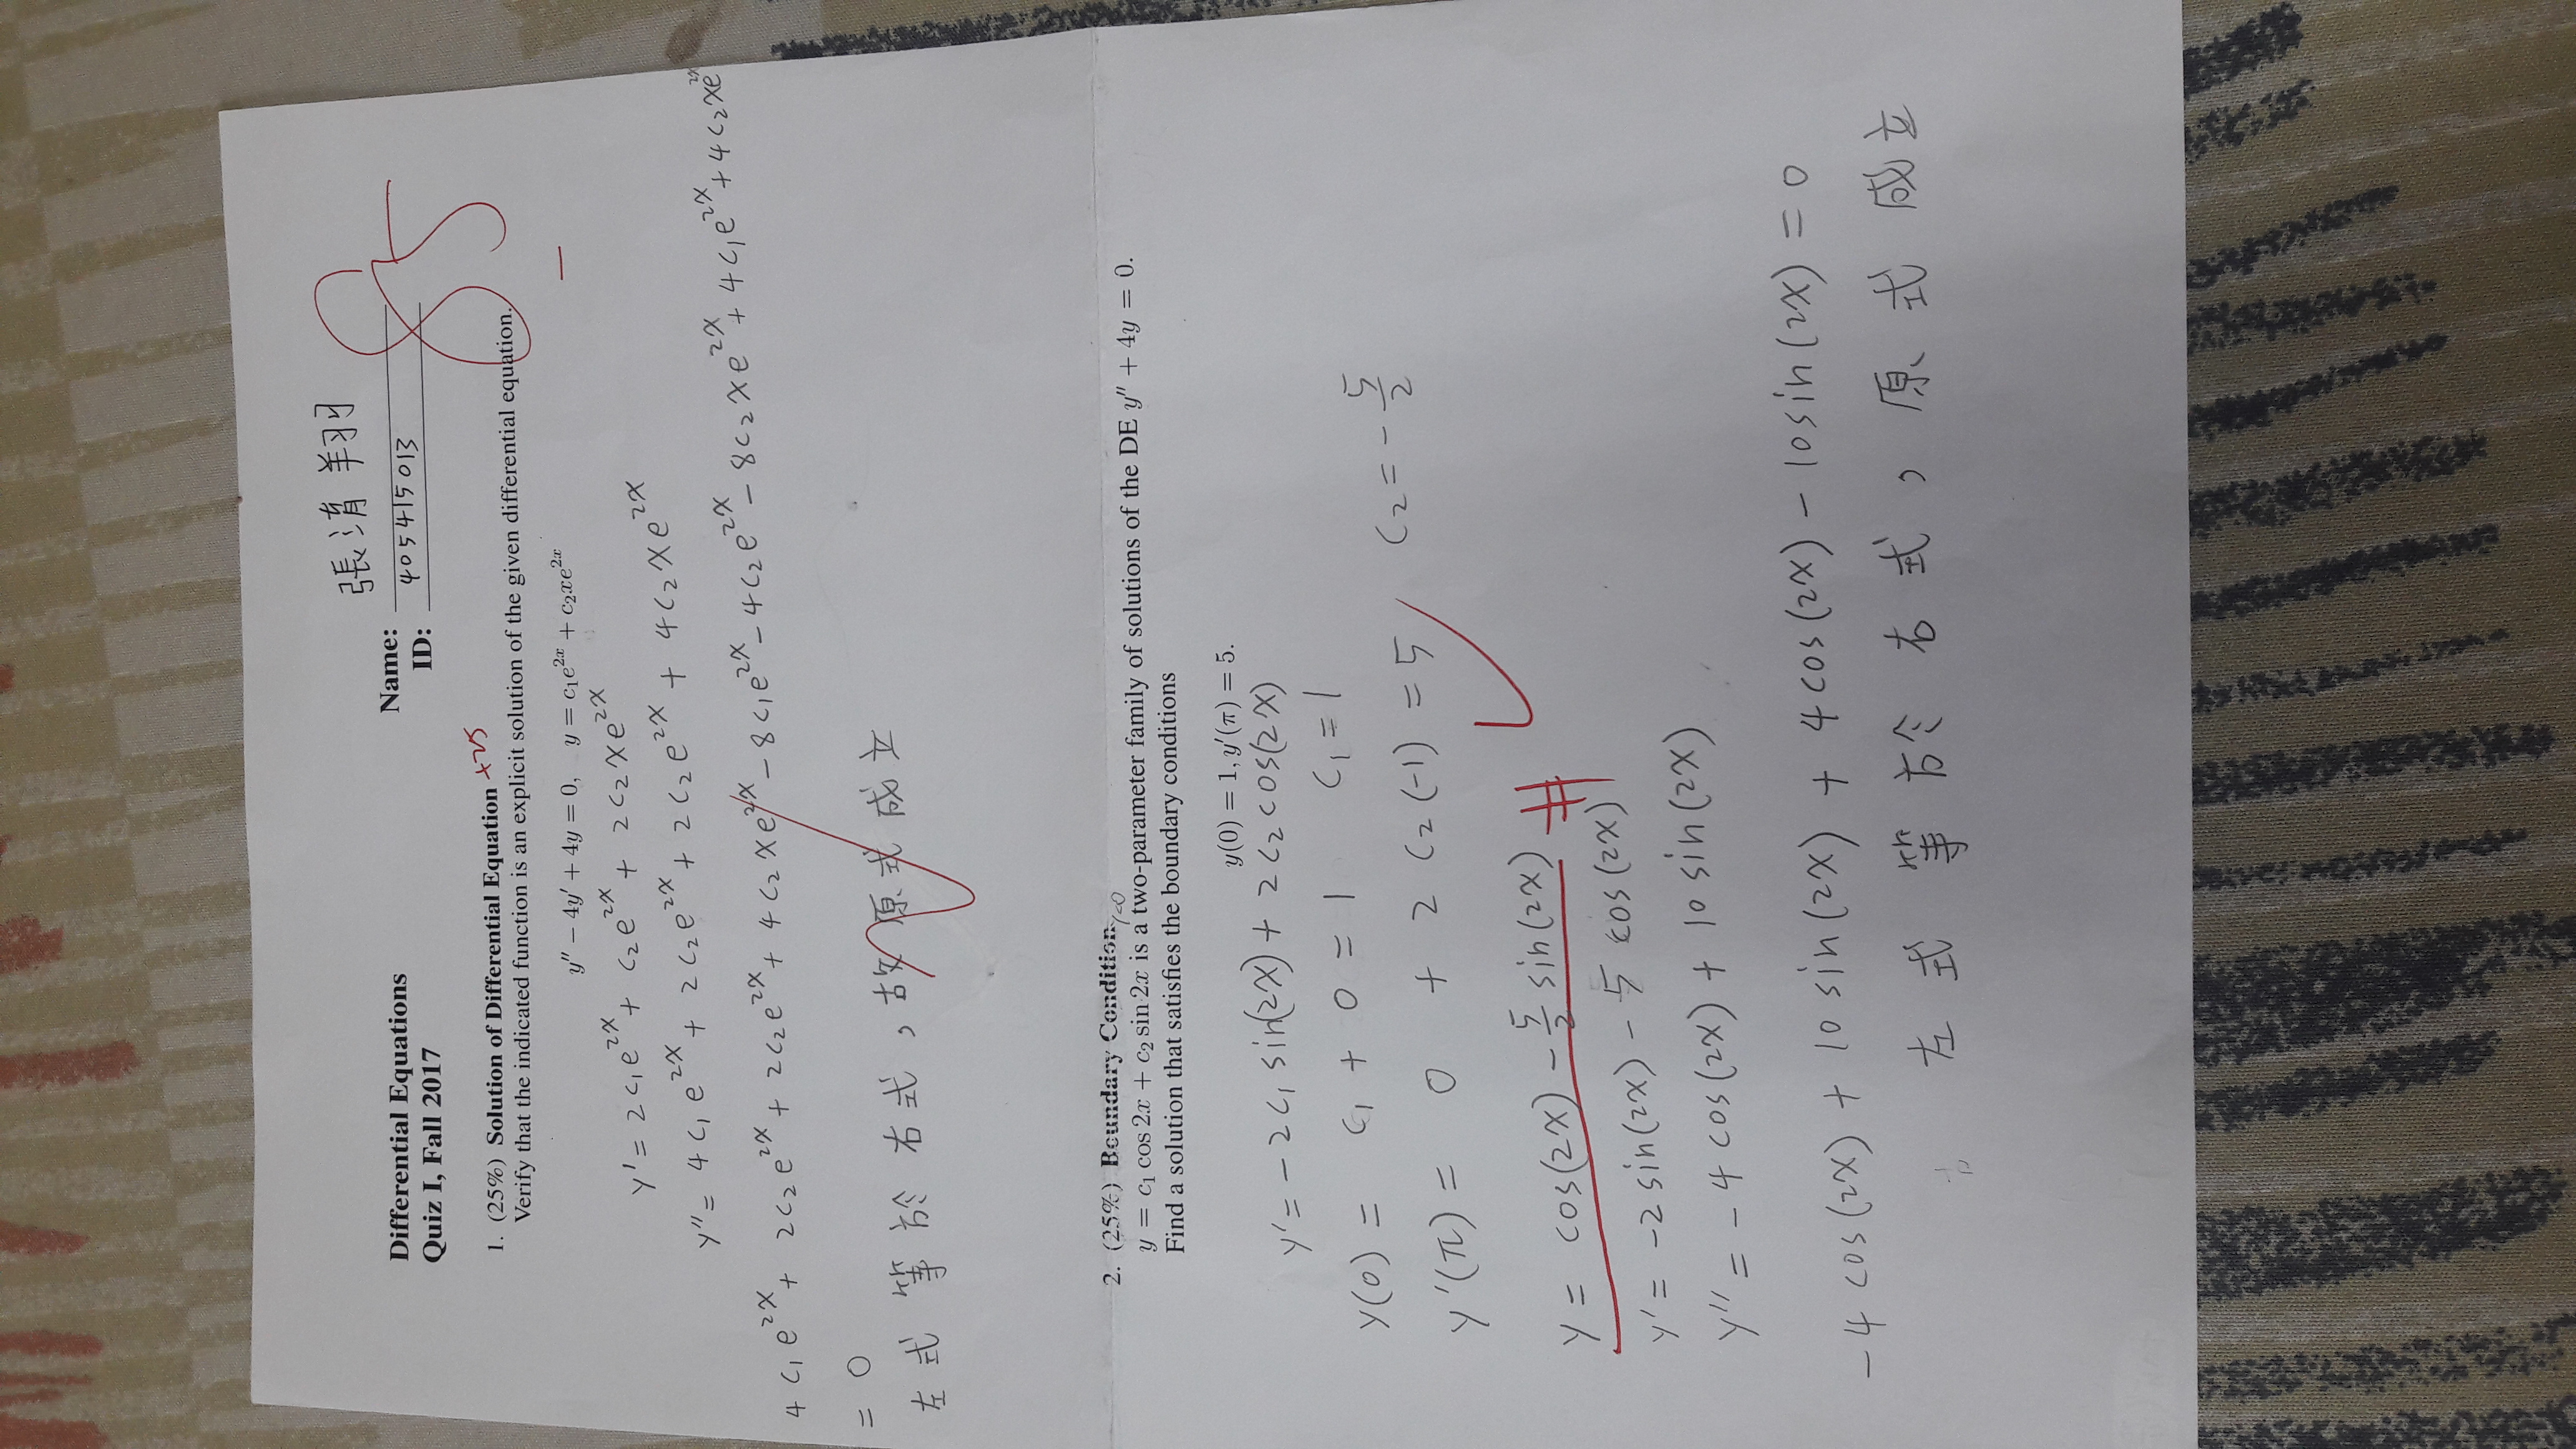 張清翔
Differential Equations Name:
Quiz I, Fall 2017 ID: 405415013
85
1. (25%) Solution of Differential Equation +25
Verify that the indicated function is an explicit solution of the given differential equation.
y″ − 4y′ + 4y = 0, y = c₁e²ˣ + c₂xe²ˣ
y' = 2c₁e²ˣ + c₂e²ˣ + 2c₂xe²ˣ
y'' = 4c₁e²ˣ + 2c₂e²ˣ + 2c₂e²ˣ + 4c₂xe²ˣ
4c₁e²ˣ + 2c₂e²ˣ + 2c₂e²ˣ + 4c₂xe²ˣ − 8c₁e²ˣ − 4c₂e²ˣ − 8c₂xe²ˣ + 4c₁e²ˣ + 4c₂xe²ˣ
= 0
左式等於右式,故原式成立
2. (25%) Boundary Condition
y = c₁ cos 2x + c₂ sin 2x is a two-parameter family of solutions of the DE y″ + 4y = 0.
Find a solution that satisfies the boundary conditions
y(0) = 1, y′(π) = 5.
y' = −2c₁ sin(2x) + 2c₂ cos(2x)
y(0) = c₁ + 0 = 1 c₁ = 1
y'(π) = 0 + 2c₂(−1) = 5 c₂ = −5/2
y = cos(2x) − 5/2 sin(2x) #
y' = −2 sin(2x) − 5 cos(2x)
y'' = −4 cos(2x) + 10 sin(2x)
−4 cos(2x) + 10 sin(2x) + 4 cos(2x) − 10 sin(2x) = 0
左式等於右式,原式成立